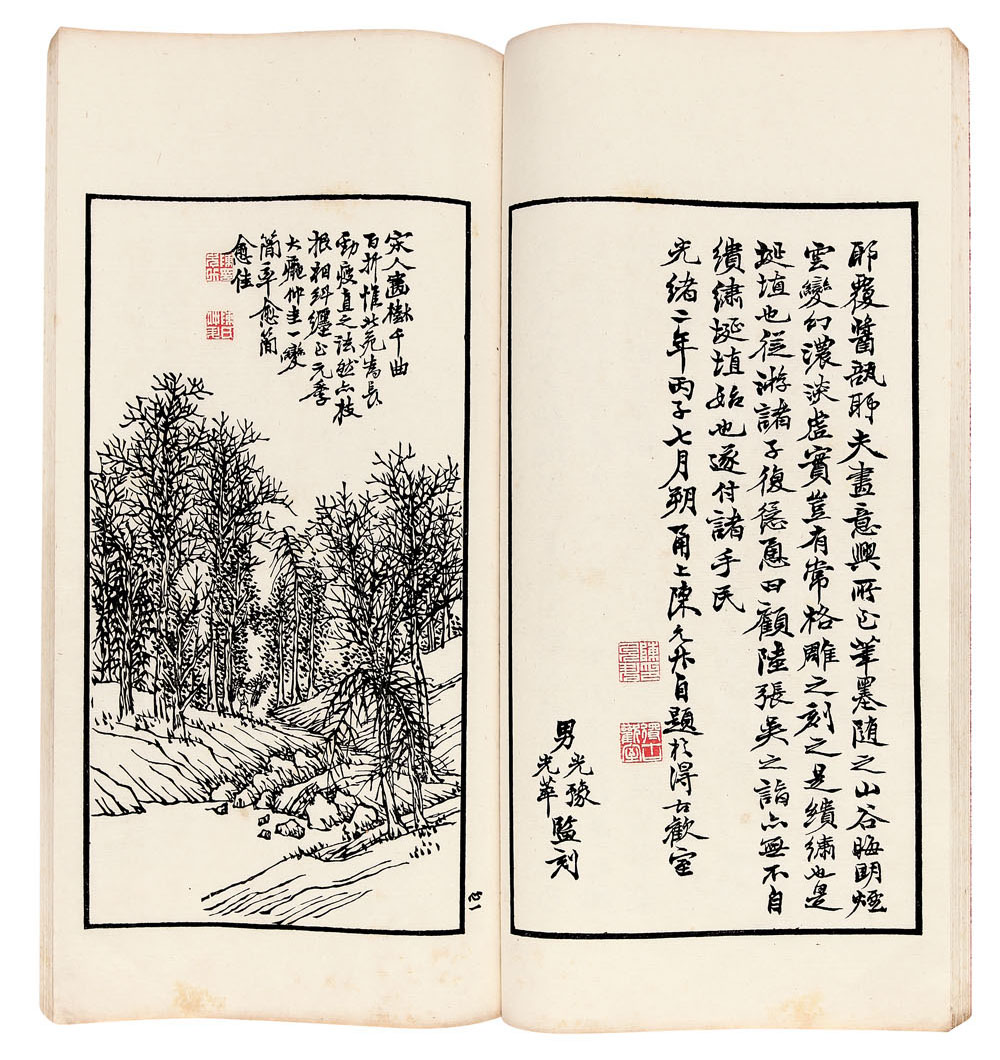 耶覆醬瓿耶夫畫意興所至筆墨隨之山谷晦明煙
雲變幻濃淡虛實豈有常格雕之刻之是繢繡也是
埏埴也從游諸子復慫恿曰顧陸張吳之詣亦無不自
繢繡埏埴始也遂付諸手民
光緒二年丙子七月朔甬上陳允升自題於得古歡室
男光豫
光華監刻
宋人畫樹千曲
百折惟北苑為長
勁瘦直之法然亦枝
根相糾纏至元季
大癡仲圭一變
簡率愈簡
愈佳